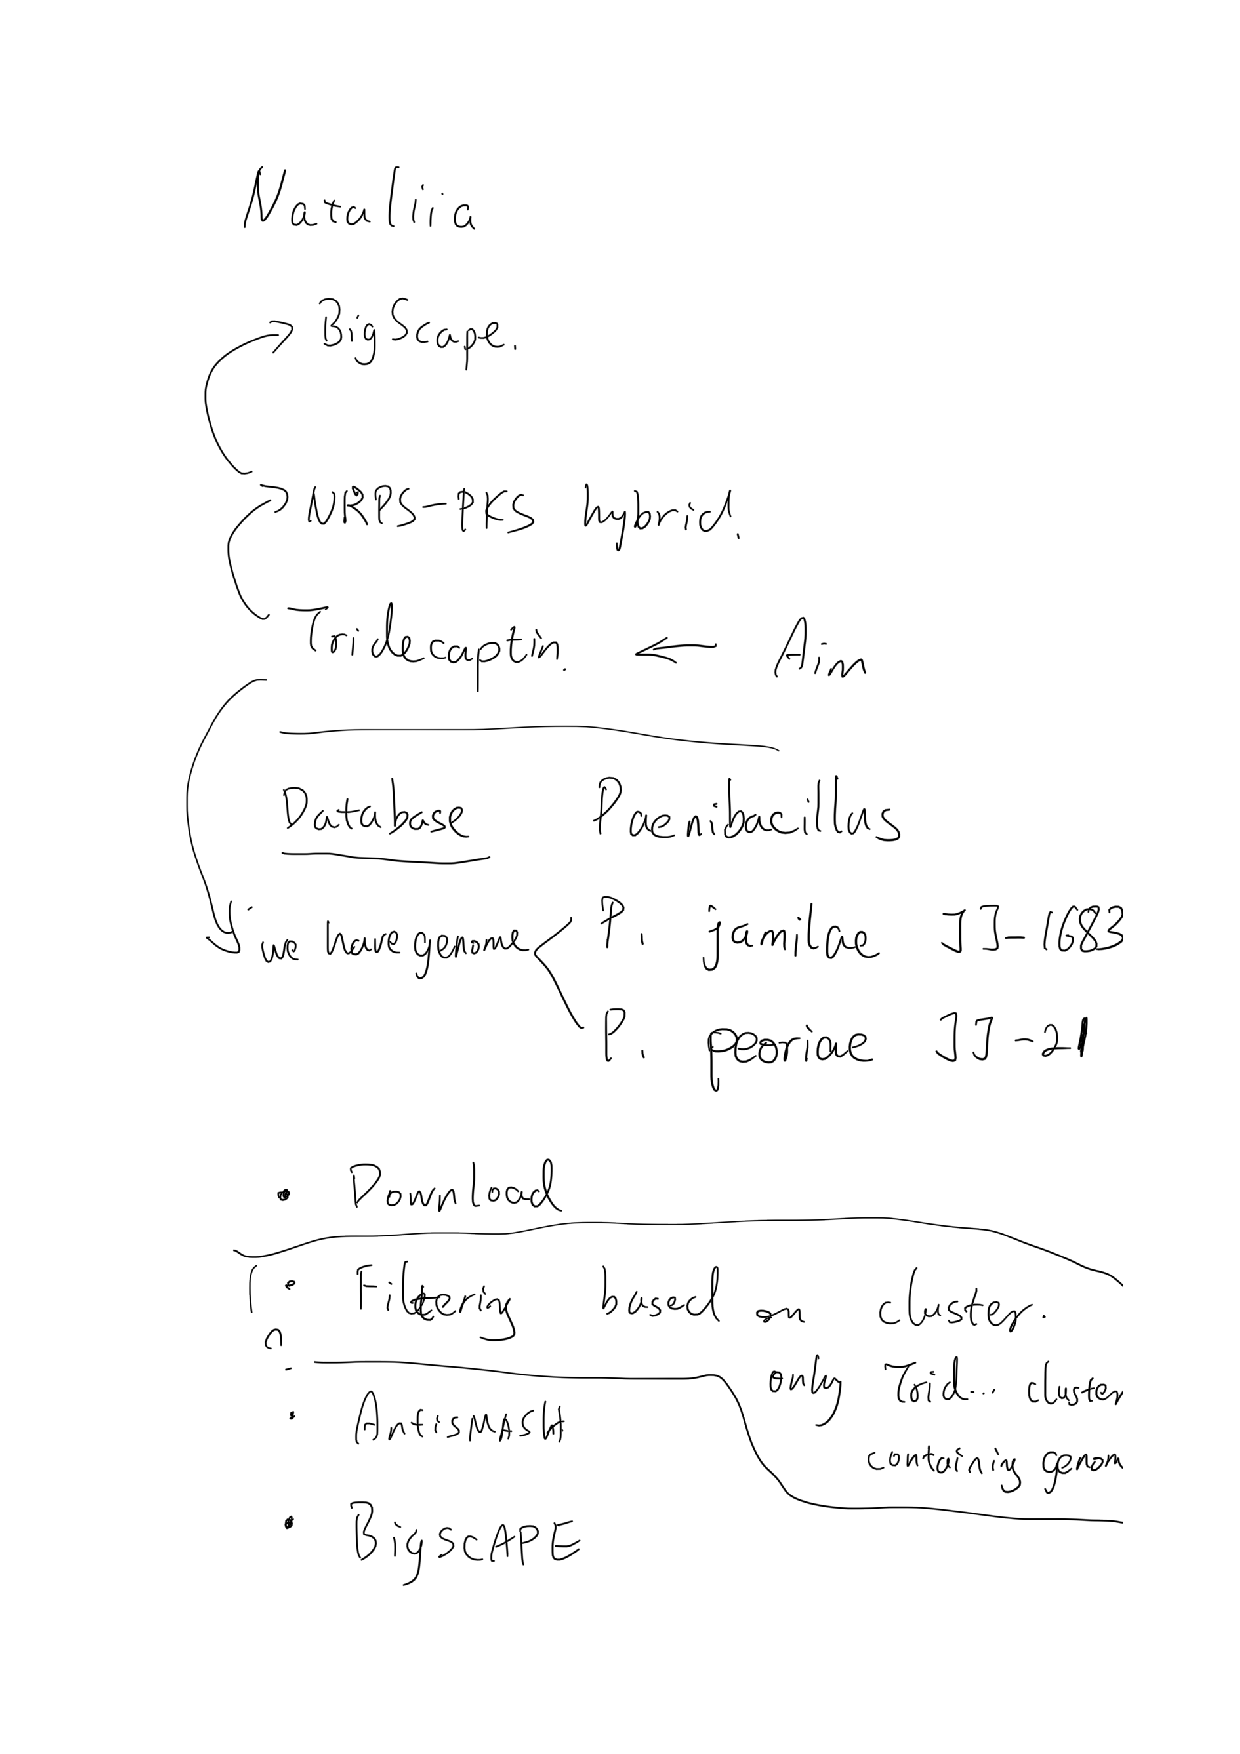 Nataliia
BigScape.
NRPS-PKS hybrid.
Tridecaptin. ← Aim
Database Paenibacillus
we have genome P. jamilae JJ-1683
P. peoriae JJ-21
• Download
• Filtering based on cluster.
only Trid... cluster
containing genom
• AntisMASH
• BigSCAPE